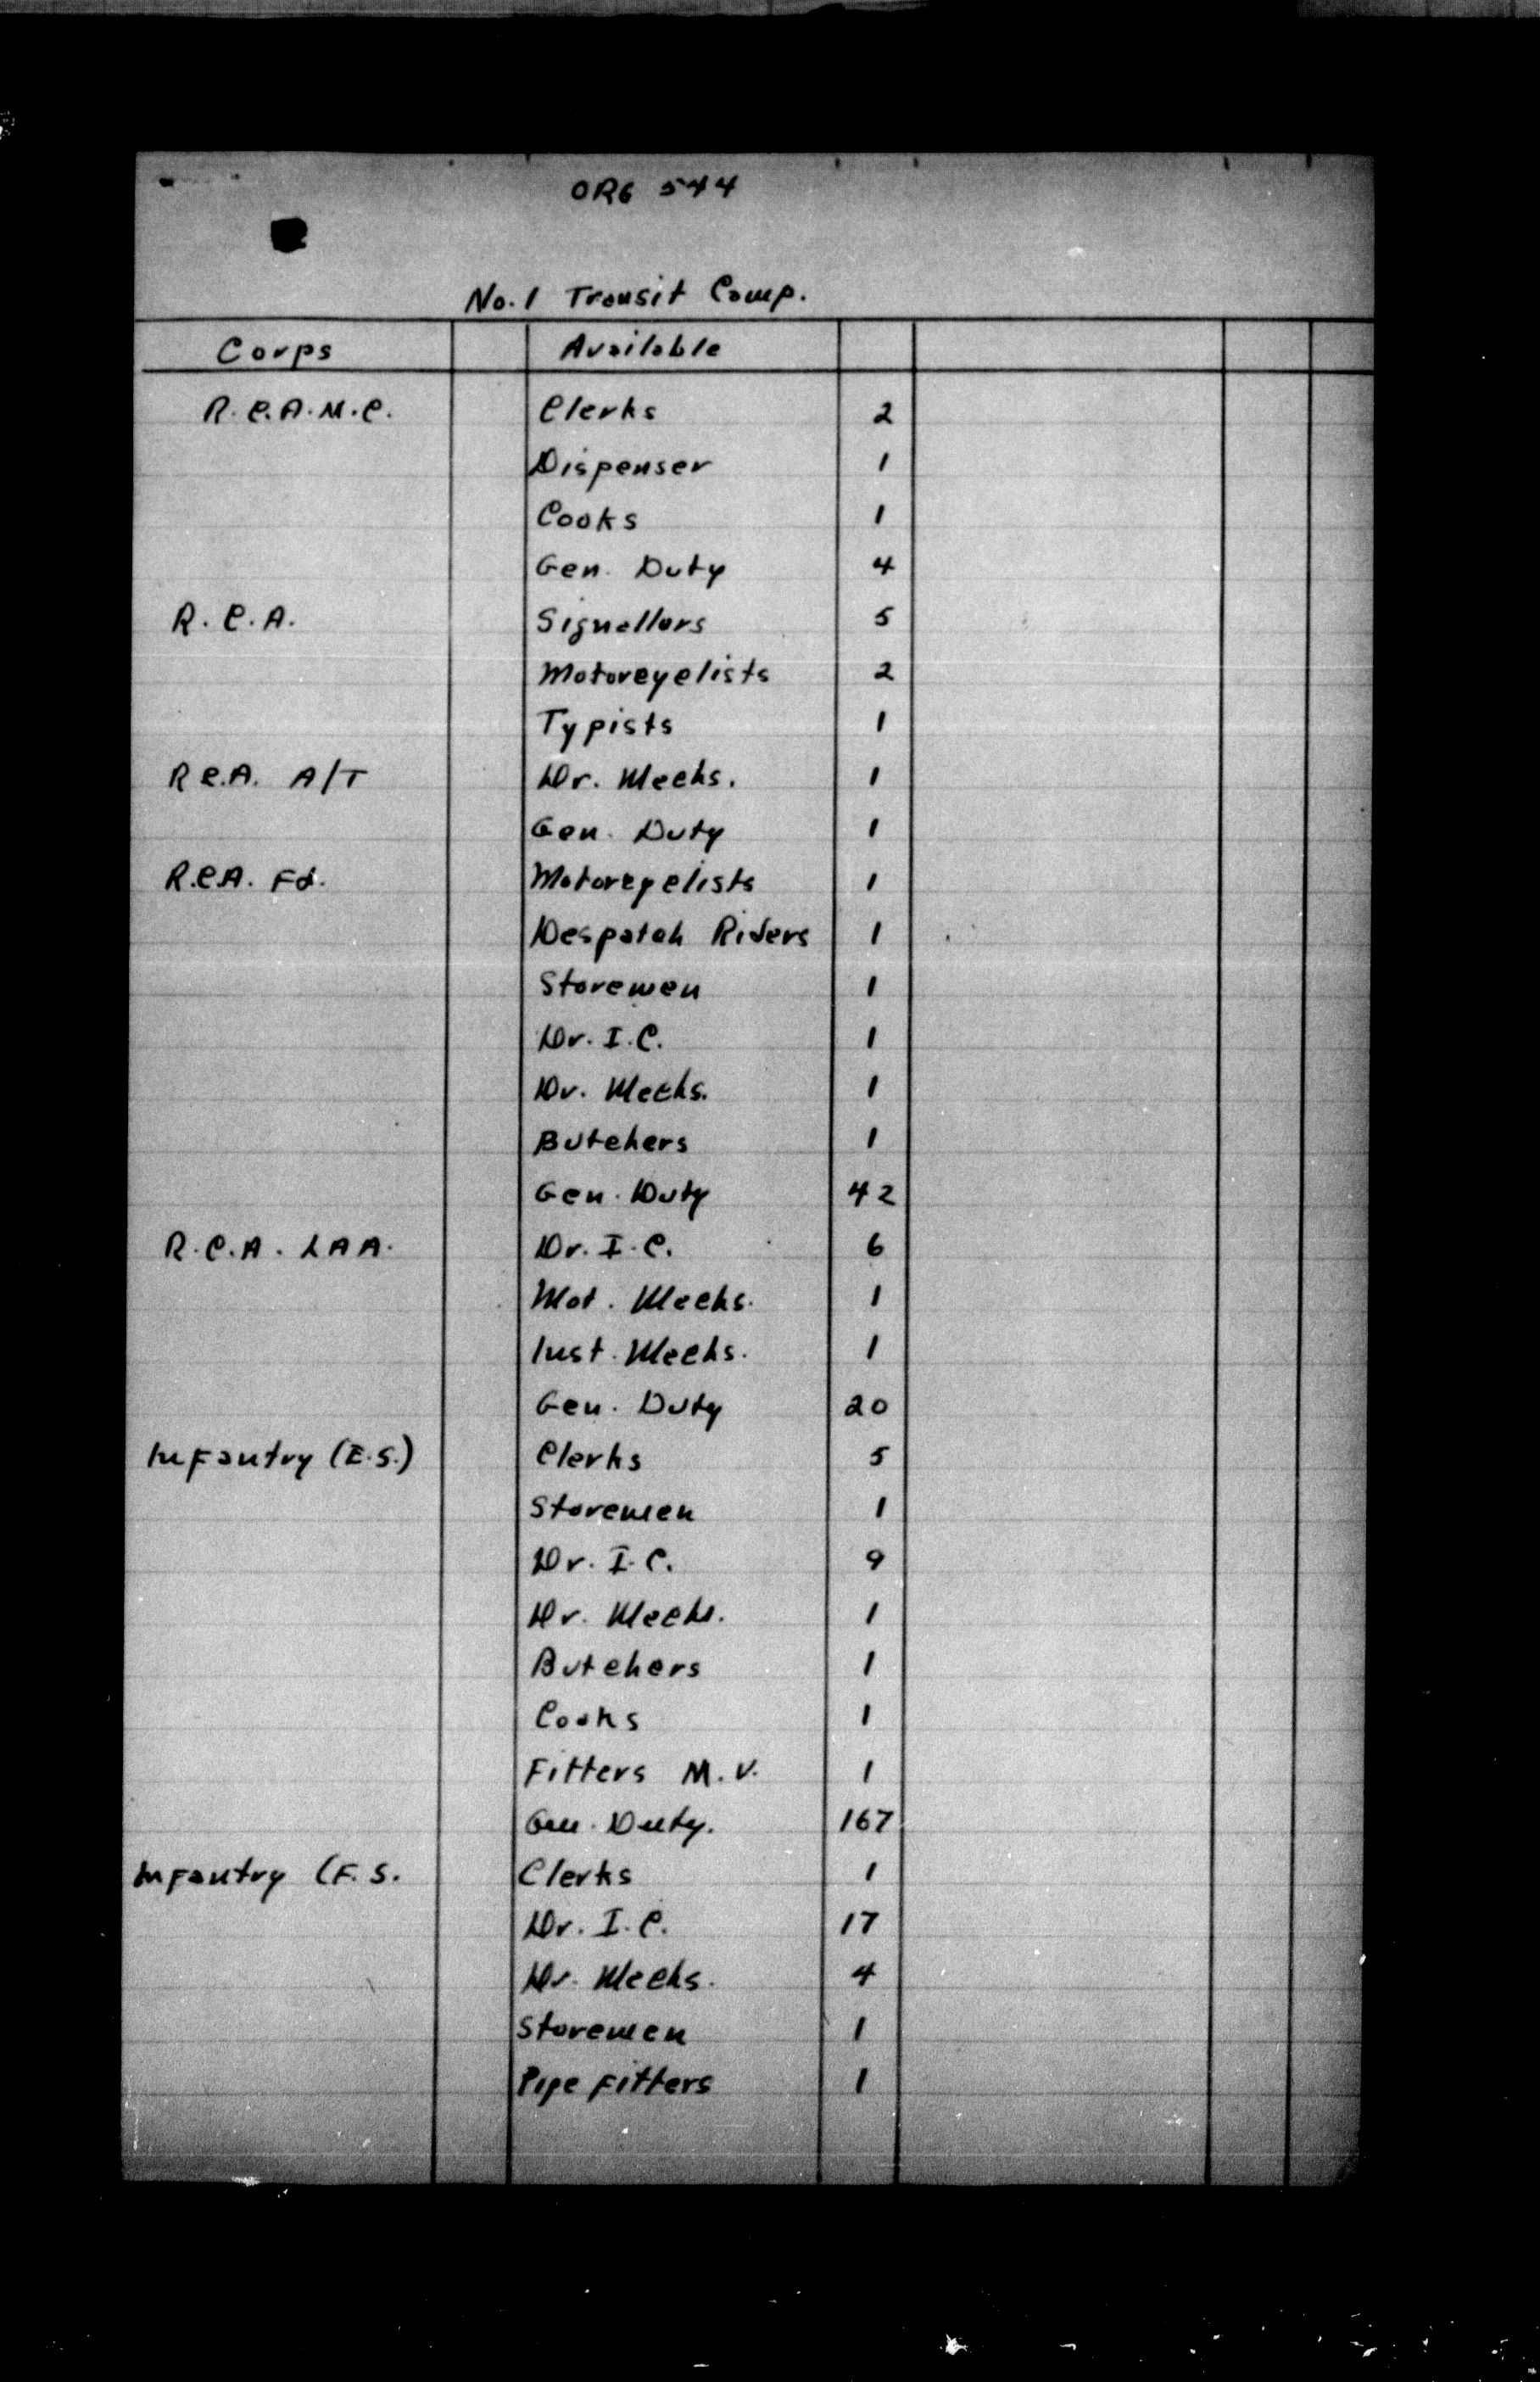 ORG 544
No. 1 Transit Comp.
Corps Available
R.C.A.M.C. Clerks 2
Dispenser 1
Cooks 1
Gen. Duty 4
R.C.A. Signallors 5
Motorcyclists 2
Typists 1
R C.A. A/T Dr. Mechs. 1
Gen. Duty 1
R.C.A. Fd. Motorcyclists 1
Despatch Riders 1
Storemen 1
Dr. I.C. 1
Dr. Mechs. 1
Butchers 1
Gen. Duty 42
R.C.A. LAA. Dr. I.C. 6
Mot. Mechs. 1
Inst. Mechs. 1
Gen. Duty 20
Infantry (E.S.) Clerks 5
Storemen 1
Dr. I.C. 9
Dr. Mechs. 1
Butchers 1
Cooks 1
Fitters M.V. 1
Gen. Duty. 167
Infantry (F.S. Clerks 1
Dr. I.C. 17
Dr. Mechs. 4
Storemen 1
Pipe Fitters 1